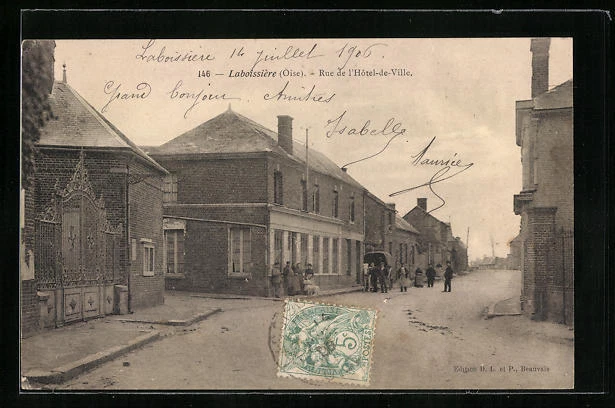 Laboissière 14 juillet 1906
146 — Laboissière (Oise). - Rue de l'Hôtel-de-Ville.
Grand Bonjour Amitiés
Isabelle
Maurice
5c
POSTES
Edition D. L. et P., Beauvais